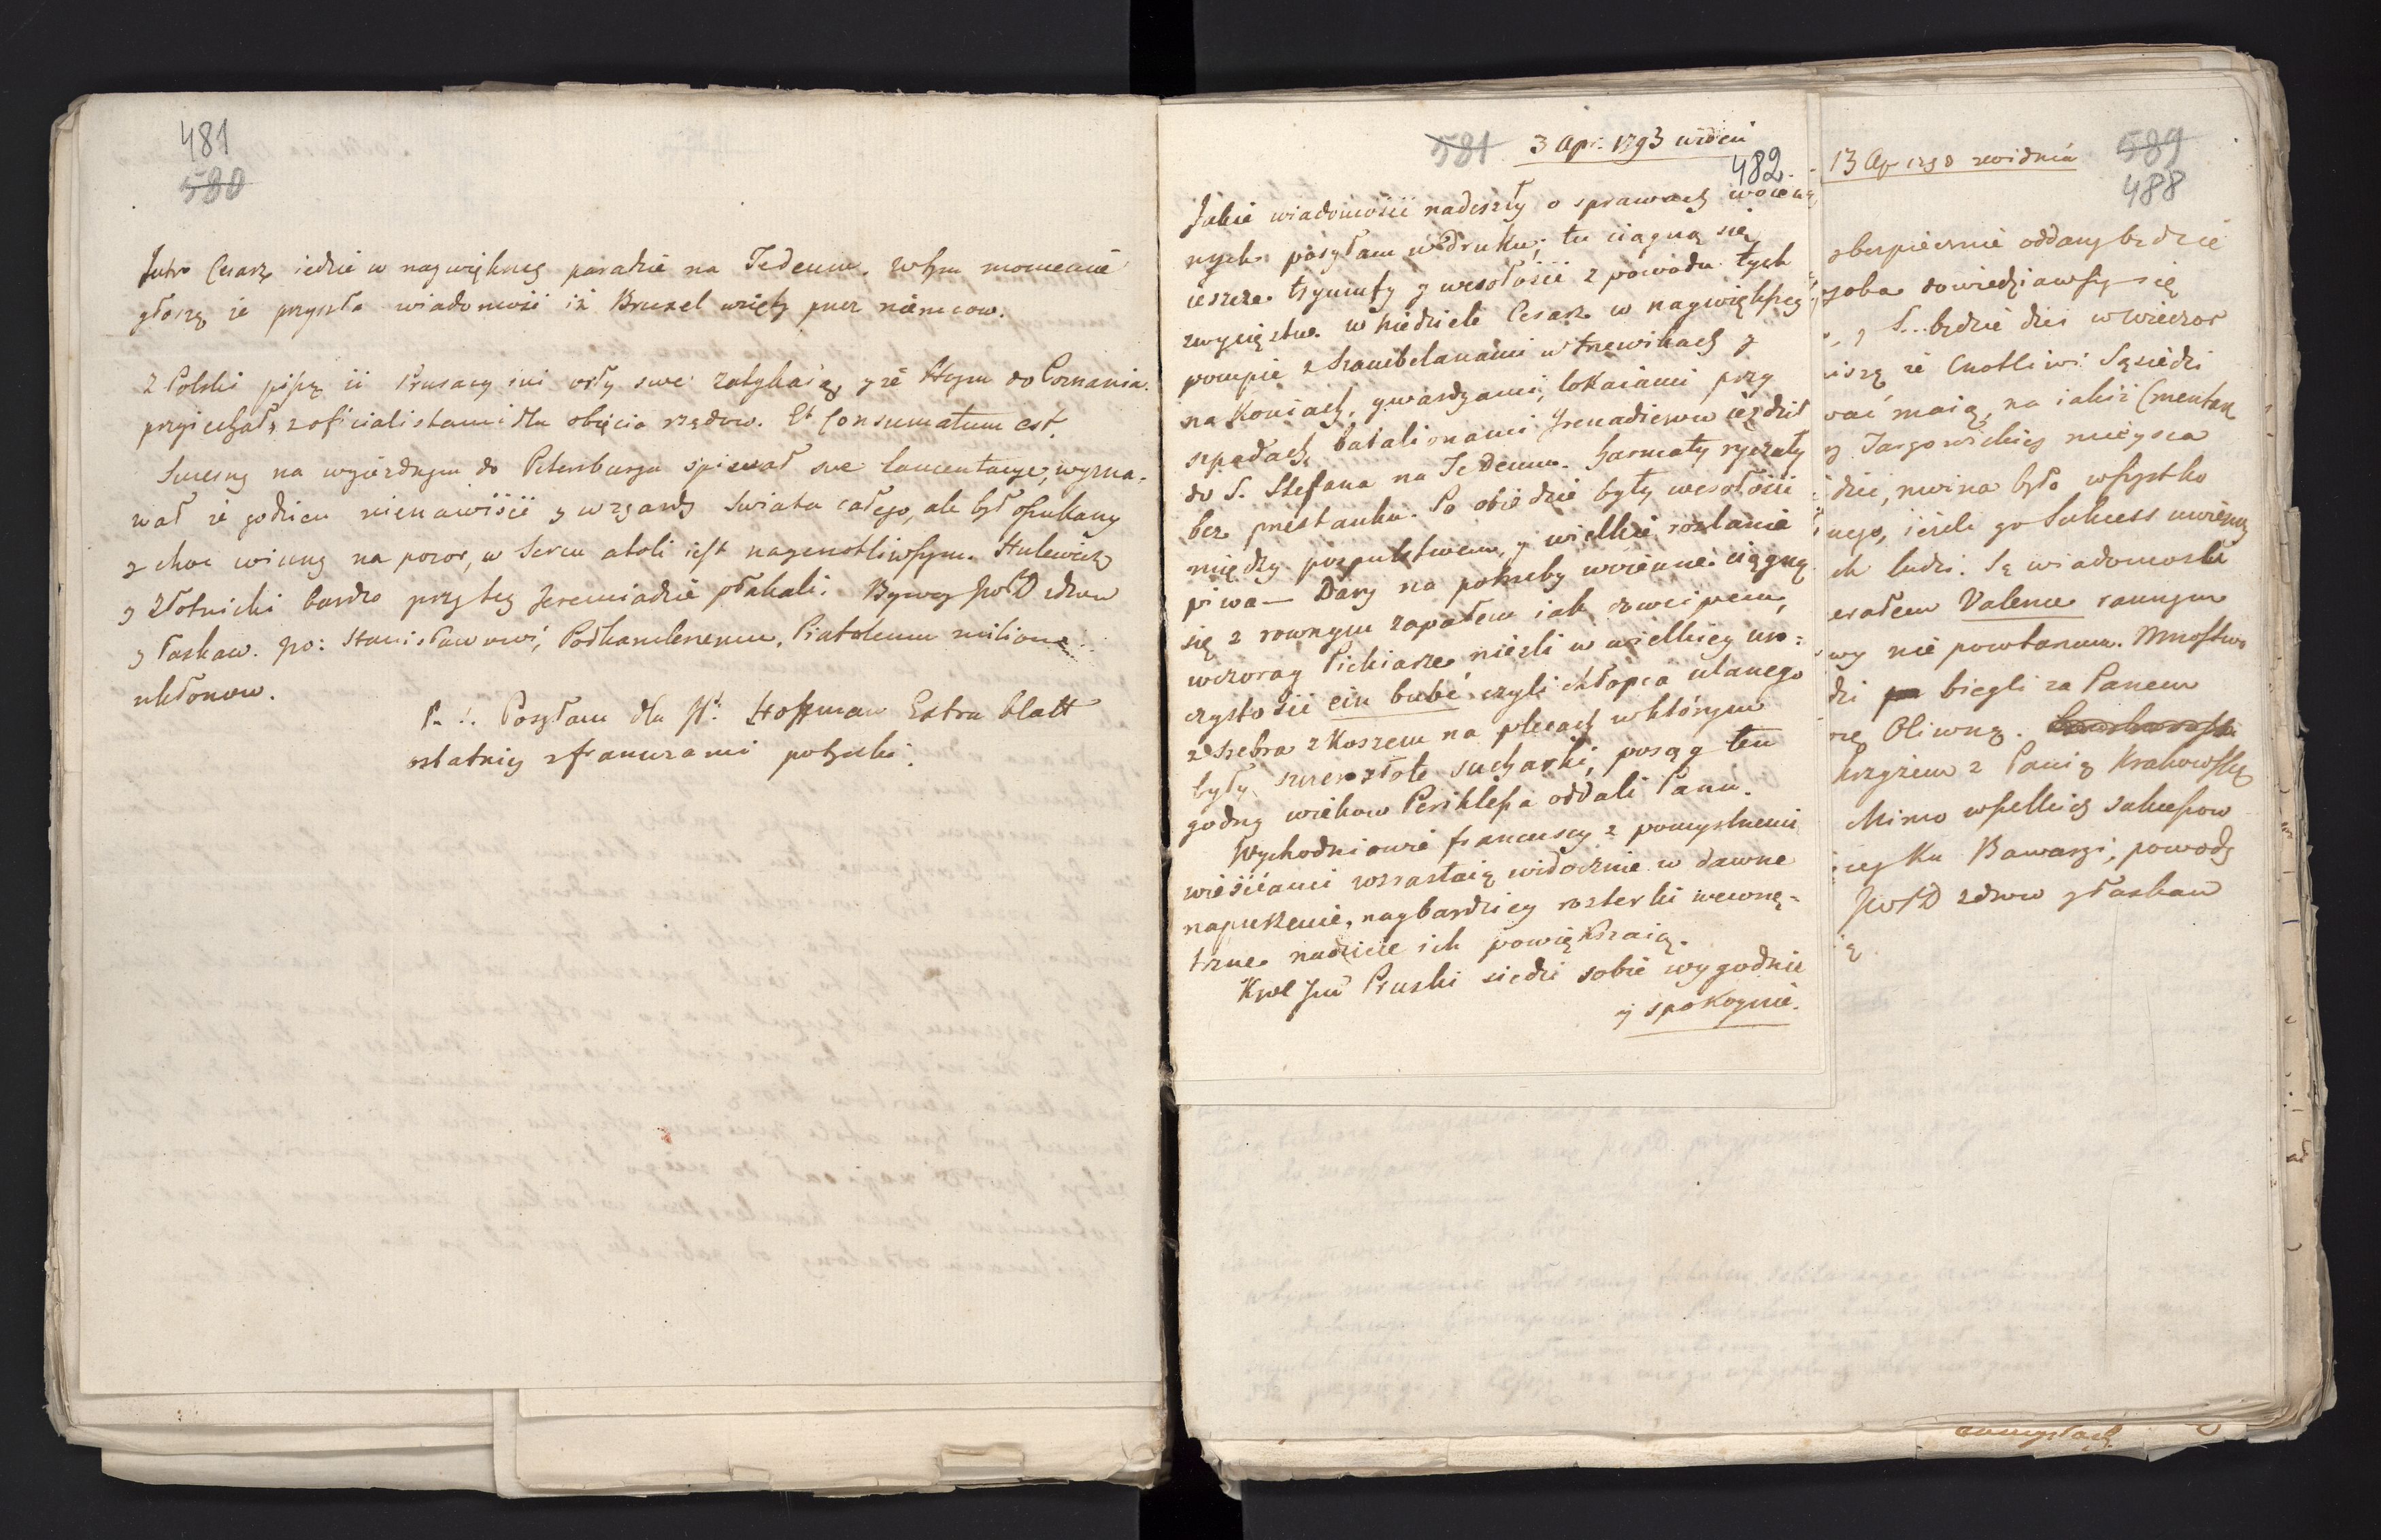 481
580
Jutro Cesarz iedzie w naywiększey paradzie na Tedeum. w tym momencie
głoszą że przyszła wiadomość iż Bruxel wzięty przez niemcow.
z Polski piszą iż Prusacy iui orły swe zatykaią, y że Hoym do Poznania
przyiechał, z oficialistami dla obięcia rządow. Et Consumatum est.
Szczesny na wyiezdnym do Petersburga spiewał swe lamentacye, wyzna-
wał że godzien nienawiści y wzgardy swiata całego, ale był oszukany
y choc winny na pozor, w sercu atoli iest naycnotliwszym. Hulewicz
y Złotnicki bardzo przy tey Jeremiadzie płakali. Byway JWPD zdrow
y łaskaw. po: Stanisławowi, Podkanclerzemu, Piatolemu miliony
ukłonow.
P. S. Posyłam dla P. Hoffman Extra blatt
ostatniey z francuzami potyczki.
581 3 Apr: 1793 widen
482.
Jakie wiadomości nadeszły o sprawach woien-
nych posyłam w druku; tu ciągną się
ieszcze tryumfy y wesołości z powodu tych
zwycięztw. w niedziele Cesarz w naywiększey
pompie z Szambelanami w trzewikach y
na koniach, gwardyami, lokaiami przy
szpadach, batalionami Grenadierow ieździł
do S. Stefana na Te Deum. harmaty ryczały
bez przestanku. Po obiedzie były wesołości
między pospulstwem, y wielkie rozlanie
piwa — Dary na potrzeby woienne ciągną
się z rownym zapałem iak dowcipem,
wczoray Pickiarze niezli w wielkiey uro=
czystości ein bube czyli chłopca ulanego
z srebra z koszem na plecach w którym
były szczerozłote sucharki, posąg ten
godny wiekow Periklesa oddali Panu.
Wychodniowie francuscy z pomyslnemi
wieściami wzrastaią widocznie w dawne
napuszenie, naybardziey rosterki wewnę=
trzne nadzieie ich powiększaią.
Krol Jmć Pruski siedzi sobie wygodnie
y spokoynie.
13 Ap 1793 zwidnia
589
488
zbespiecznie oddany będzie
osoba dowiedziawszy się
S... będzie dzis w wieczor
iszą że Cnotliwi Sąsiedzi
wać maią, na iakiż Cmentarz
Targowickiey mieysca
dzie, nwina było wszystko
nego, ieżeli go Sukcess uwieńczy
ch ludzi. Są wiadomosci
erałem Valence rannym
wy nie powtarzam. Mnostwo
dzi biegli za Panem
rę Oliwną.
krzyżem z Panią Krakowską
Mimo wszelkich sukcessow
iey ku Bawaryi, powody
JWPD zdrow y łaskaw
ię